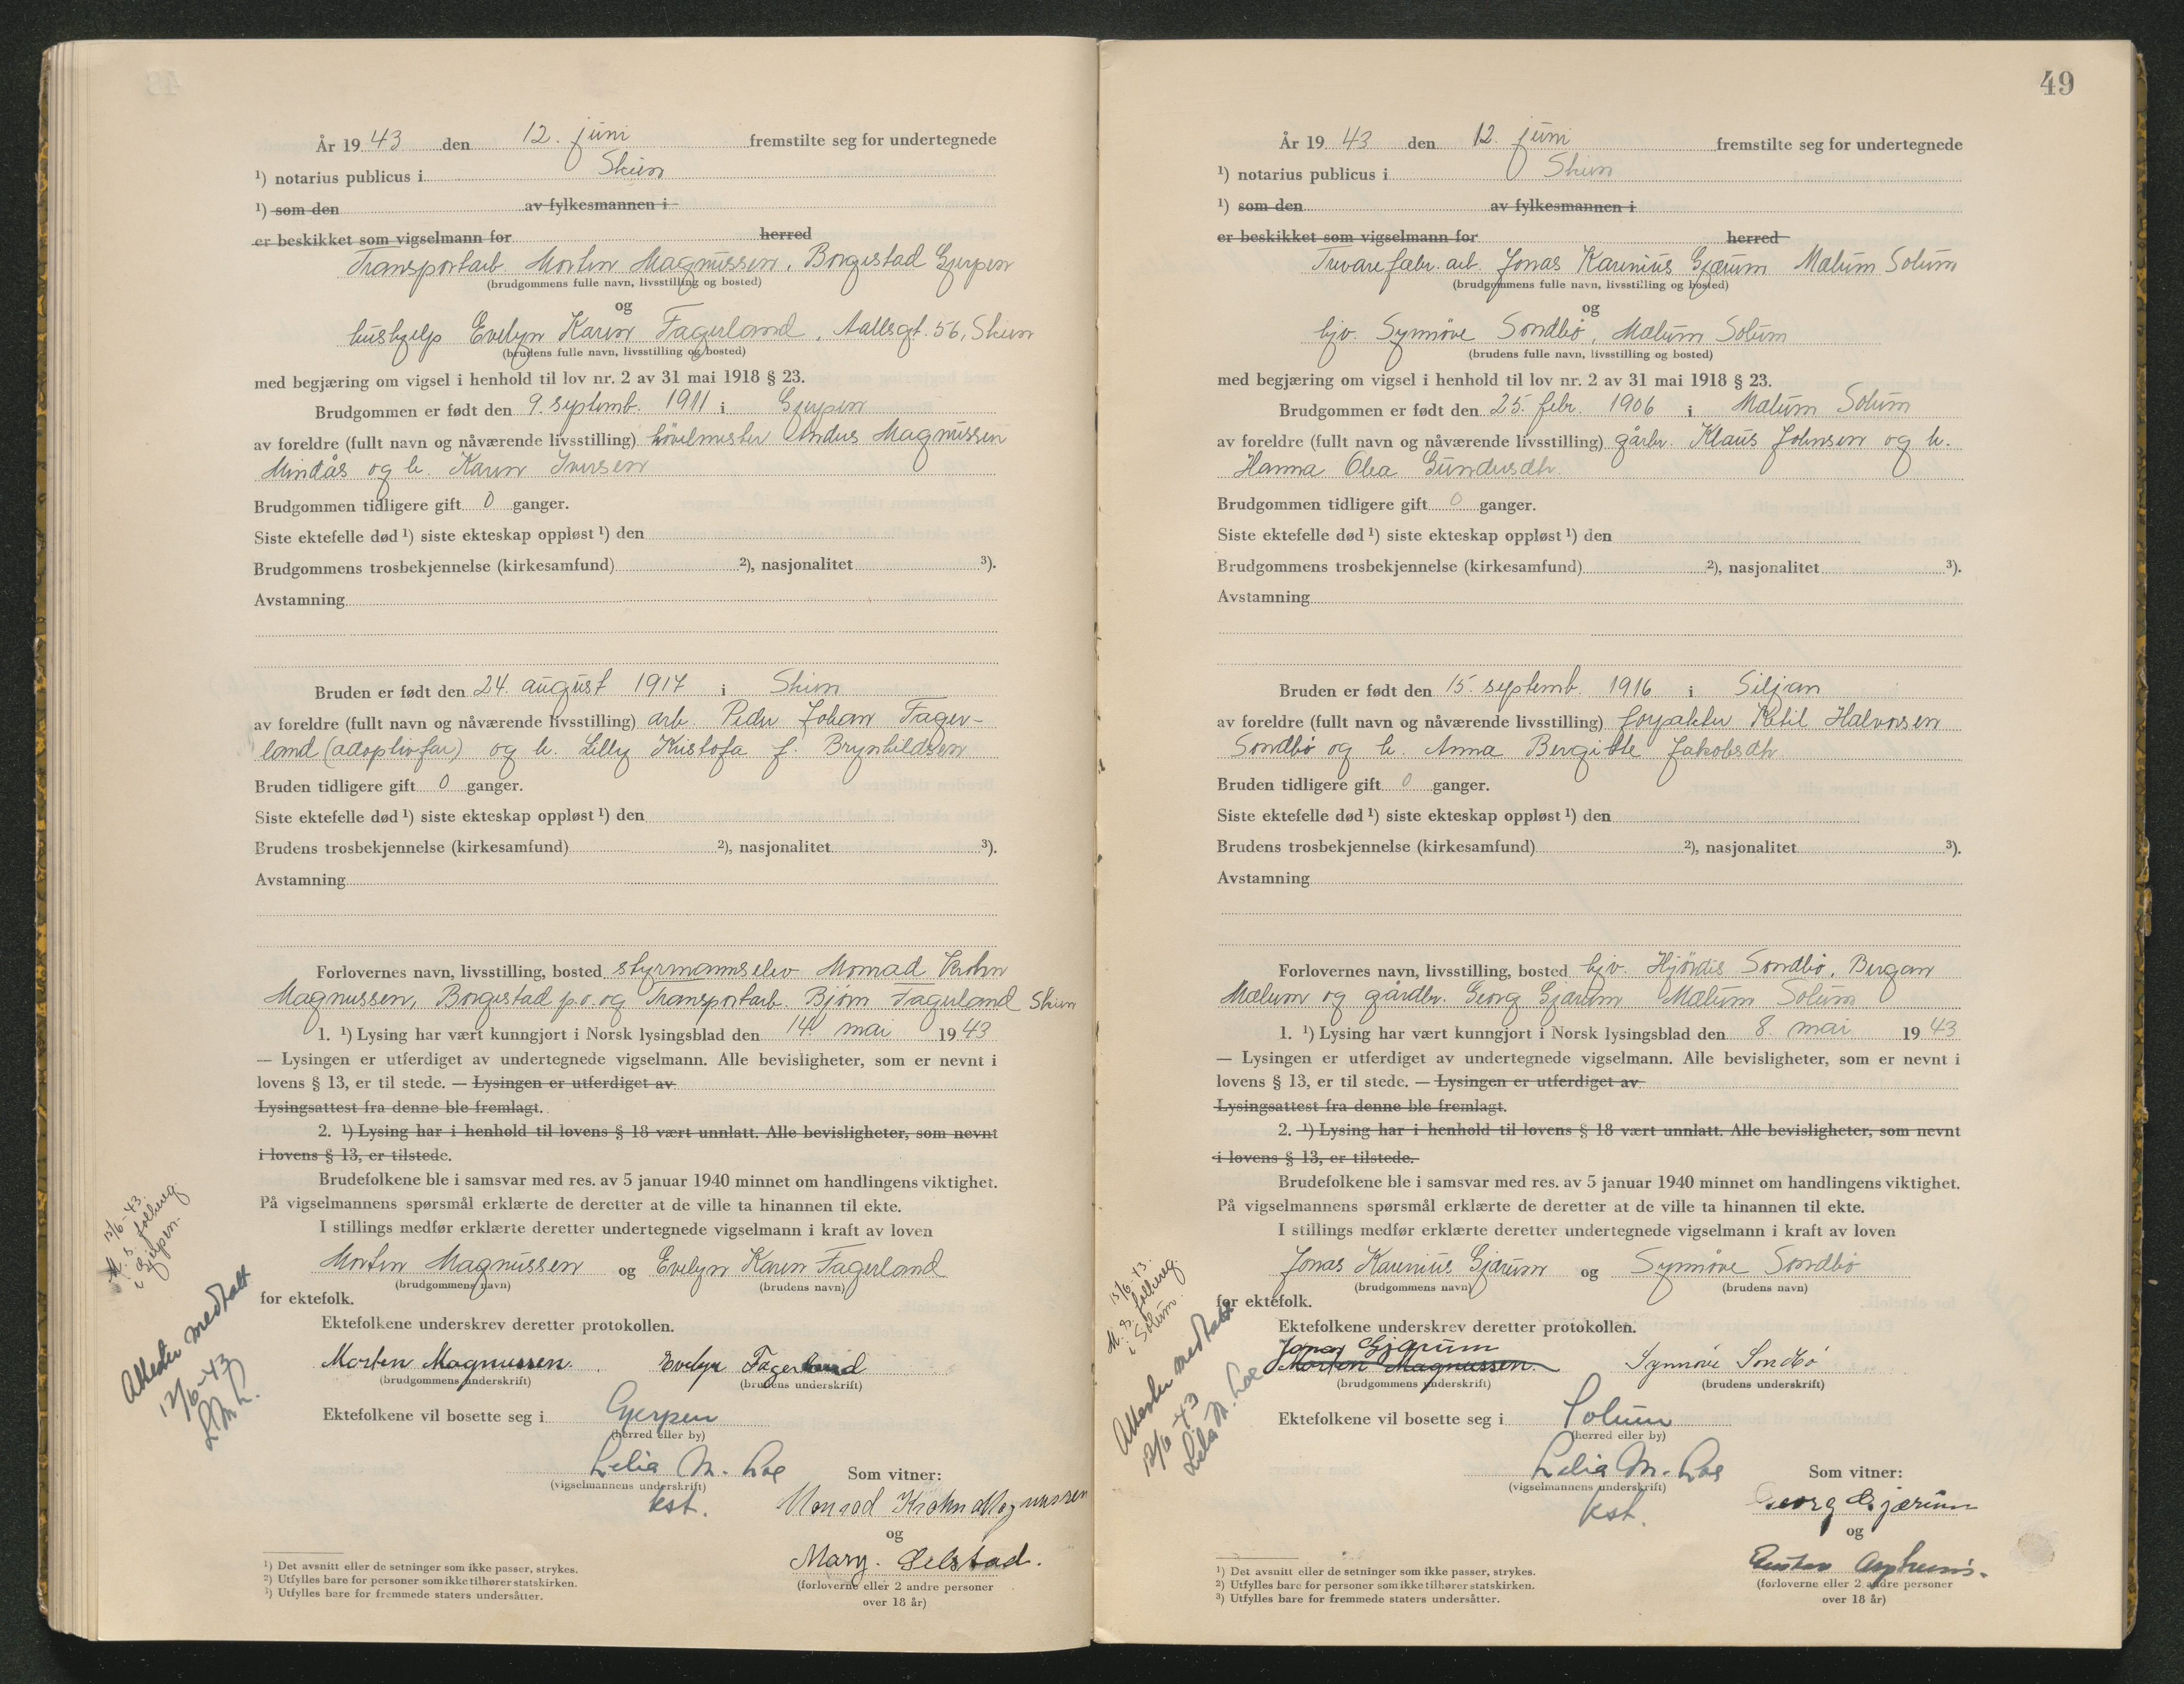 År 1943 den 12. juni fremstilte seg for undertegnede
¹) notarius publicus i Skien
¹) som den av fylkesmannen i
er beskikket som vigselmann for herred
Transportarb. Morten Magnussen, Borgestad Gjerpen
(brudgommens fulle navn, livsstilling og bosted)
og
hushjelp Evelyn Karin Fagerland, Aallsgt. 56, Skien
(brudens fulle navn, livsstilling og bosted)
med begjæring om vigsel i henhold til lov nr. 2 av 31 mai 1918 § 23.
Brudgommen er født den 9. septemb. 1911 i Gjerpen
av foreldre (fullt navn og nåværende livsstilling) hövelmester Anders Magnussen
Mindås og h. Karen Iversen
Brudgommen tidligere gift 0 ganger.
Siste ektefelle død ¹) siste ekteskap oppløst ¹) den
Brudgommens trosbekjennelse (kirkesamfund) ²), nasjonalitet ³).
Avstamning
Bruden er født den 24. august 1917 i Skien
av foreldre (fullt navn og nåværende livsstilling) arb. Peder Johan Fager-
land (adoptivfar) og h. Lilly Kristofa f. Brynhildsen
Bruden tidligere gift 0 ganger.
Siste ektefelle død ¹) siste ekteskap oppløst ¹) den
Brudens trosbekjennelse (kirkesamfund) ²), nasjonalitet ³).
Avstamning
Forlovernes navn, livsstilling, bosted styrmannselev Monrad Krohn
Magnussen, Borgestad p.o. og Transportarb. Bjørn Fagerland Skien
1. ¹) Lysing har vært kunngjort i Norsk lysingsblad den 14 mai 1943
— Lysingen er utferdiget av undertegnede vigselmann. Alle bevisligheter, som er nevnt i
lovens § 13, er til stede. — Lysingen er utferdiget av
Lysingsattest fra denne ble fremlagt.
2. ¹) Lysing har i henhold til lovens § 18 vært unnlatt. Alle bevisligheter, som nevnt
i lovens § 13, er tilstede.
Brudefolkene ble i samsvar med res. av 5 januar 1940 minnet om handlingens viktighet.
På vigselmannens spørsmål erklærte de deretter at de ville ta hinannen til ekte.
I stillings medfør erklærte deretter undertegnede vigselmann i kraft av loven
Morten Magnussen og Evelyn Karen Fagerland
(brudgommens navn) (brudens navn)
for ektefolk.
Ektefolkene underskrev deretter protokollen.
Morten Magnussen. Evelyn Fagerland
(brudgommens underskrift) (brudens underskrift)
Ektefolkene vil bosette seg i Gjerpen
(herred eller by)
Lelia M. Loe Som vitner:
(vigselmannens underskrift)
kst.
Monrad Krohn Magnussen
og
Mary. Selstad.
(forloverne eller 2 andre personer
over 18 år)
¹) Det avsnitt eller de setninger som ikke passer, strykes.
²) Utfylles bare for personer som ikke tilhører statskirken.
³) Utfylles bare for fremmede staters undersåtter.
15/6-43.
M. s. folkereg.
i Gjerpen.
Attester medtatt
12/6-43
L.M.L.
49
År 1943 den 12. juni fremstilte seg for undertegnede
¹) notarius publicus i Skien
¹) som den av fylkesmannen i
er beskikket som vigselmann for herred
Trevarefabr. arb. Jonas Karenius Gjærum Mælum Solum
(brudgommens fulle navn, livsstilling og bosted)
og
hjv. Synnöve Sondbö, Mælum Solum
(brudens fulle navn, livsstilling og bosted)
med begjæring om vigsel i henhold til lov nr. 2 av 31 mai 1918 § 23.
Brudgommen er født den 25. febr. 1906 i Mælum Solum
av foreldre (fullt navn og nåværende livsstilling) gårbr. Klaus Johnsen og h.
Hanna Olea Gundersdtr.
Brudgommen tidligere gift 0 ganger.
Siste ektefelle død ¹) siste ekteskap oppløst ¹) den
Brudgommens trosbekjennelse (kirkesamfund) ²), nasjonalitet ³).
Avstamning
Bruden er født den 15. septemb. 1916 i Siljan
av foreldre (fullt navn og nåværende livsstilling) forpakter Ketil Halvorsen
Sondbö og h. Anna Bergitte Jakobsdtr.
Bruden tidligere gift 0 ganger.
Siste ektefelle død ¹) siste ekteskap oppløst ¹) den
Brudens trosbekjennelse (kirkesamfund) ²), nasjonalitet ³).
Avstamning
Forlovernes navn, livsstilling, bosted hjv. Hjördis Sondbö, Bergan
Mælum og gårdbr. Georg Gjærum Mælum Solum
1. ¹) Lysing har vært kunngjort i Norsk lysingsblad den 8. mai 1943
— Lysingen er utferdiget av undertegnede vigselmann. Alle bevisligheter, som er nevnt i
lovens § 13, er til stede. — Lysingen er utferdiget av
Lysingsattest fra denne ble fremlagt.
2. ¹) Lysing har i henhold til lovens § 18 vært unnlatt. Alle bevisligheter, som nevnt
i lovens § 13, er tilstede.
Brudefolkene ble i samsvar med res. av 5 januar 1940 minnet om handlingens viktighet.
På vigselmannens spørsmål erklærte de deretter at de ville ta hinannen til ekte.
I stillings medfør erklærte deretter undertegnede vigselmann i kraft av loven
Jonas Karenius Gjærum og Synnöve Sondbö
(brudgommens navn) (brudens navn)
for ektefolk.
Ektefolkene underskrev deretter protokollen.
Jonas Gjærum
Morten Magnussen. Synnöve Sondbö
(brudgommens underskrift) (brudens underskrift)
Ektefolkene vil bosette seg i Solum
(herred eller by)
Lelia M. Loe Som vitner:
(vigselmannens underskrift)
kst.
Georg Gjærum
og
(forloverne eller 2 andre personer
over 18 år)
¹) Det avsnitt eller de setninger som ikke passer, strykes.
²) Utfylles bare for personer som ikke tilhører statskirken.
³) Utfylles bare for fremmede staters undersåtter.
15/6-43.
M. s. folkereg
i Solum.
Attester medtatt
12/6-43
Lelia M. Loe